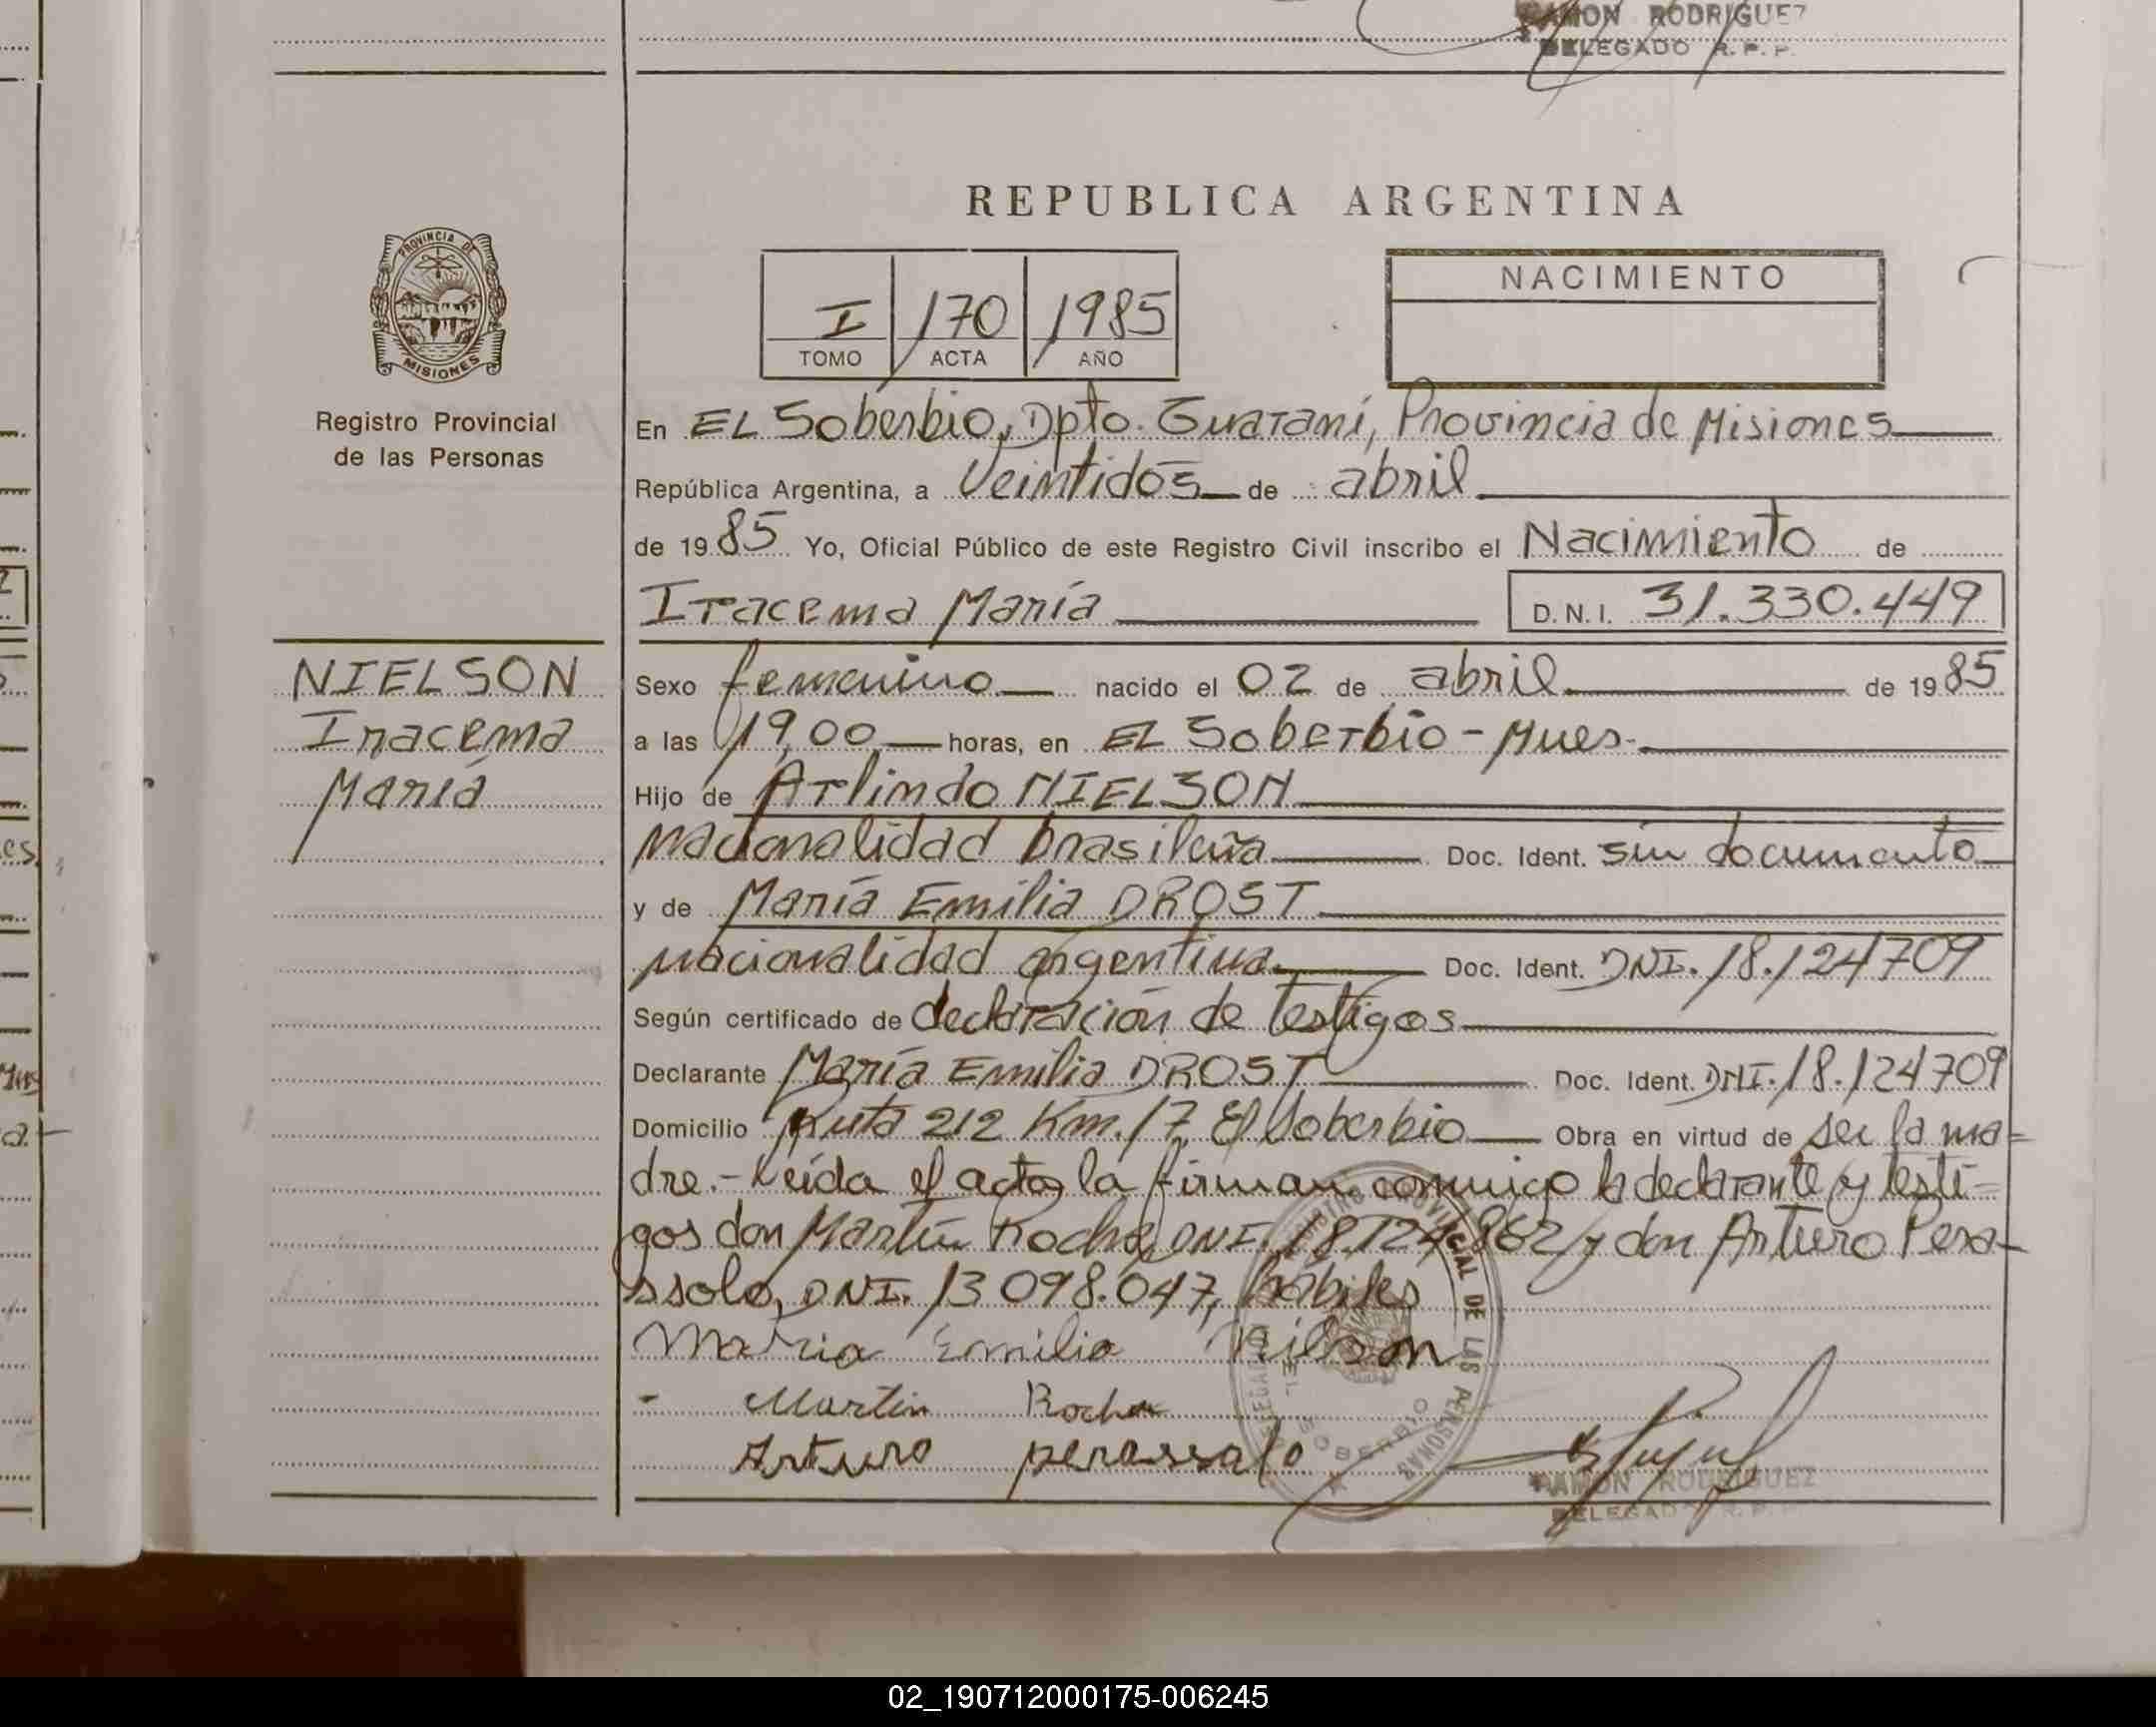 RAMON RODRIGUEZ
DELEGADO R. P. P.
REPUBLICA ARGENTINA
PROVINCIA DE
MISIONES
Registro Provincial
de las Personas
I 170 1985
TOMO ACTA AÑO
NACIMIENTO
En EL Soberbio, Dpto. Guaraní, Provincia de Misiones
República Argentina, a Veintidós de abril
de 1985 Yo, Oficial Público de este Registro Civil inscribo el Nacimiento de
Iracema María D.N.I. 31.330.449
NIELSON
Iracema
María
Sexo femenino nacido el 02 de abril de 1985
a las 19,00 horas, en EL Soberbio - Mnes.
Hijo de Arlindo NIELSON
nacionalidad brasileña Doc. Ident. sin documento
y de María Emilia DROST
nacionalidad argentina Doc. Ident. DNI. 18.124709
Según certificado de declaración de testigos
Declarante María Emilia DROST Doc. Ident. DNI. 18.124709
Domicilio Ruta 212 Km. 17, El Soberbio Obra en virtud de ser la ma=
dre.- Leída el acta, la firman conmigo la declarante y testi-
gos don Martín Rocha, DNI. 18.124.862 y don Arturo Pera-
ssolo, DNI. 13 098.047, hábiles
Maria Emilia Nilson
- Martin Rocha
Arturo perassalo
REGISTRO PROVINCIAL DE LAS PERSONAS
EL SOBERBIO
RAMON RODRIGUEZ
DELEGADO R. P. P.
02_190712000175-006245